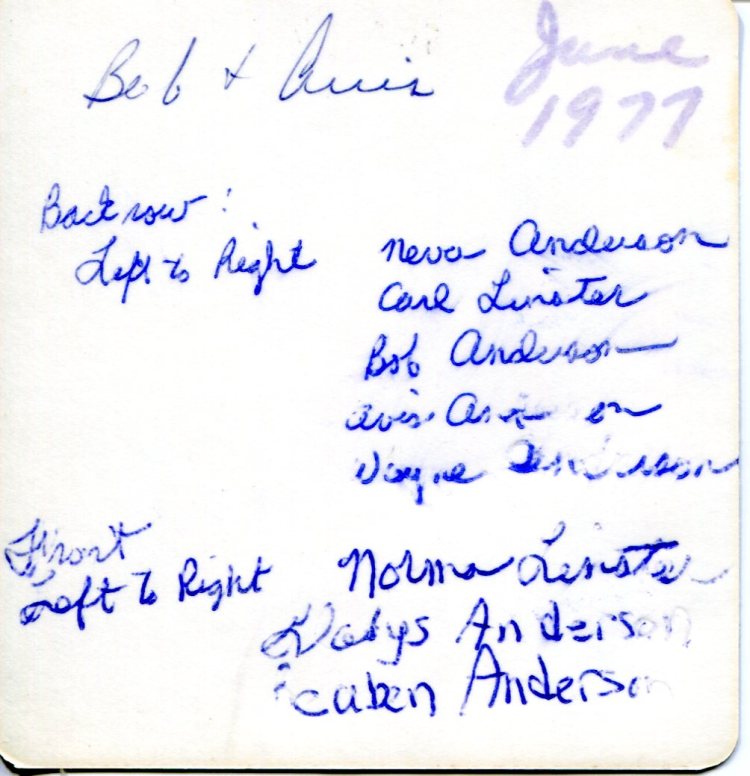 Bob & Avis
June
1977
Back row :
Left to Right
Neva Anderson
Carl Linster
Bob Anderson
Avis Anderson
Wayne Anderson
Front
Left to Right
Norma Linster
Anderson
Anderson